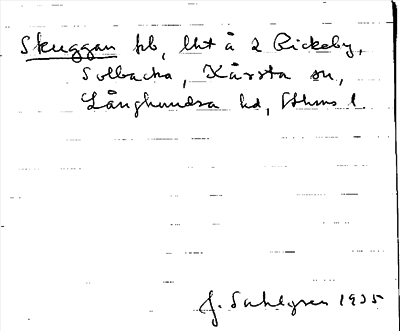 Skuggan hb, lht å 2 Rickeby,
Solbacka, Kårsta sn,
Långhundra hd, Sthms l.
J. Sahlgren 1935